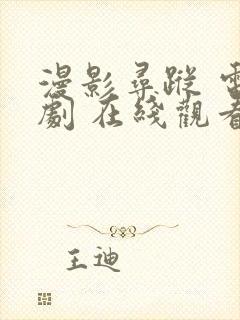 漫影尋蹤 電
劇 在綫觀看
王迪